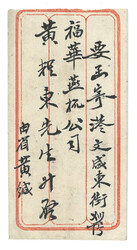 要函寄港文咸東街
福華燕梳公司
黃耀東先生升啓
由省黃緘